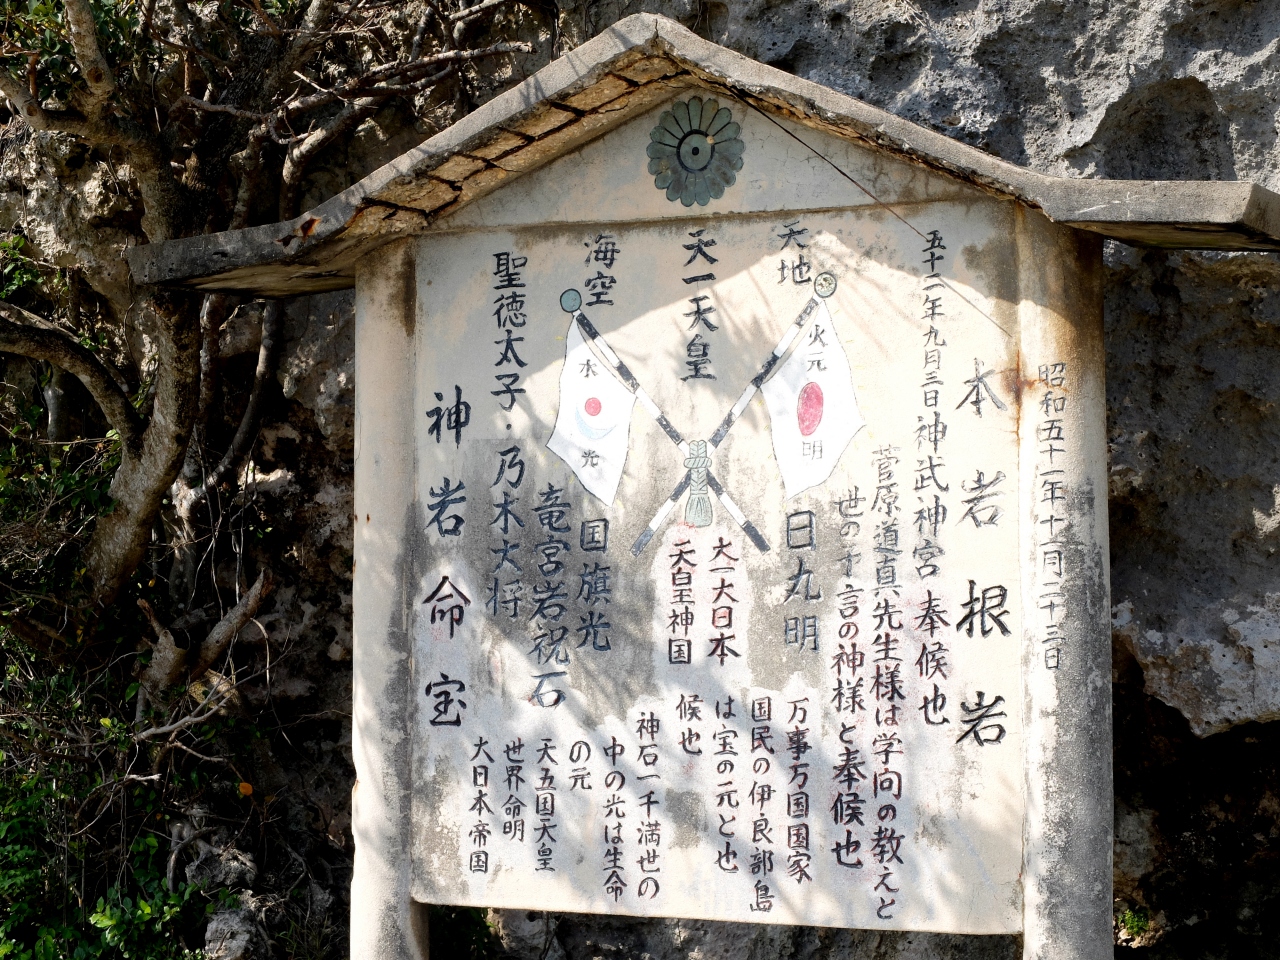 昭和五十一年十月二十三日
本岩根岩
五十二年九月三日神武神宮奉候也
菅原道真先生様は学向の教えと
世の千言の神様と奉候也
天地
火元
明
日九明
万事万国国家
国民の伊良部島
は宝の元と也
候也
天一天皇
大一大日本
天皇神国
神石一千満世の
中の光は生命
の元
海空
本
光
国旗光
竜宮岩祝石
天五国天皇
世界命明
大日本帝国
聖徳太子・乃木大将
神岩命宝